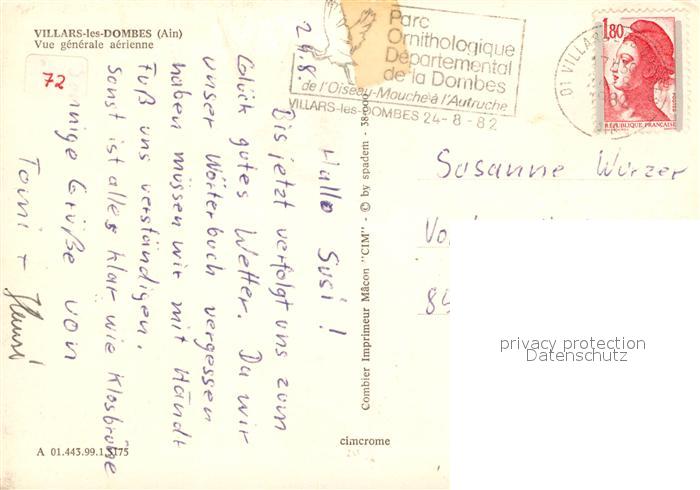 VILLARS-les-DOMBES (Ain)
Vue générale aérienne
72
24.8.
Hallo Susi!
Bis jetzt verfolgt uns zum
Glück gutes Wetter. Da wir
unser Wörterbuch vergessen
haben müssen wir mit Händ+
Fuß uns verständigen.
Sonst ist alles klar wie Klosbrühe
Sonnige Grüße von
Toni +
A 01.443.99.1.3175
Parc
Ornithologique
Départemental
de la Dombes
de l'Oiseau-Mouche à l'Autruche
VILLARS-les-DOMBES 24-8-82
01 VILLARS
1982
1,80
POSTES
REPUBLIQUE FRANÇAISE
Combier Imprimeur Mâcon "CIM" - © by spadem - 38.000
cimcrome
Susanne Wurzer
privacy protection
Datenschutz